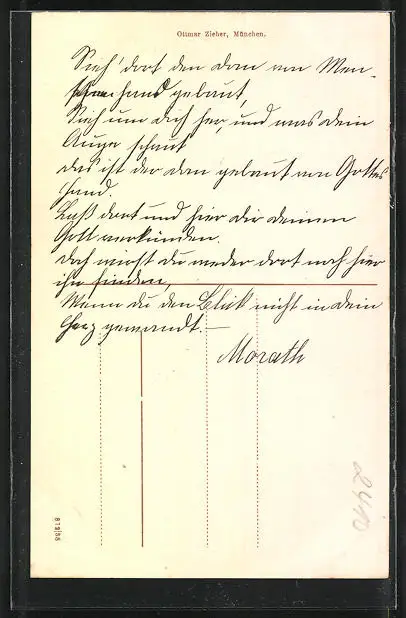 Ottmar Zieher, München.
Sieh' dort den dom von Men-
schenhand gebaut,
Sieh um dich her, und was dein
Auge schaut
das ist der dom gebaut von Gottes
Hand.
Laß dort und hier dir deinen
Gott verkünden.
doch wirst du weder dort noch hier
ihn finden,
Wenn du den Blick nicht in dein
Herz gewandt.—
Morath
819/58
2410